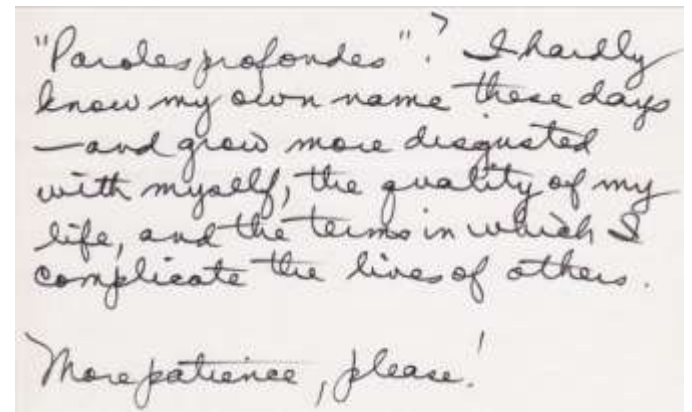 "Paroles profondes"? I hardly
know my own name these days
—and grow more disgusted
with myself, the quality of my
life, and the terms in which I
complicate the lives of others.
More patience, please!